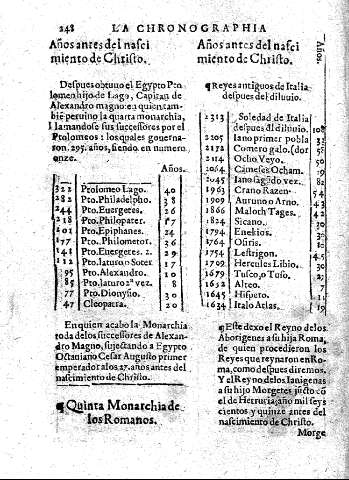 248 LA CHRONOGRAPHIA
Años antes del nasci
miento de Christo.
Despues obtuuo el Egypto Pto
lomeo hijo de Lago, Capitan de
Alexandro magno: a quien tam-
bié peruino la quarta monarchia,
llamandose sus successores por el
Ptolomeos: los quales gouerna-
ron. 295. años, siendo en numero
onze.
Años.
322 Ptolomeo Lago. 40
282 Pto. Philadelpho. 38
244 Pto. Euergetes. 26
218 Pto. Philopater. 17
201 Pto. Epiphanes. 24
177 Pto. Philometor. 36
141 Pto. Euergetes. 2. 29
112 Pto. laturo o Soter 17
95 Pto. Alexandro. 10
85 Pto. laturo 2ª vez. 8
77 Pto. Dionysio. 30
47 Cleopatra. 20
En quien acabo la Monarchia
toda de los successores de Alexan-
dro Magno, sujectando a Egypto
Octauiano Cesar Augusto primer
emperador a los 27. años antes del
nascimiento de Christo.
¶Quinta Monarchia de
los Romanos.
Años antes del nasci
miento de Christo.
Años.
¶Reyes antiguos de Italia
despues del diluuio.
2313 Soledad de Italia
despues del diluuio. 108
2205 Iano primer pobla 33
2172 Comero galo. dor
2114 Ocho Veyo. 50
2064 Cameses Ocham. 19
2045 Iano segúdo vez. 82
1963 Crano Razen. 54
1909 Auruno o Arno. 43
1866 Maloth Tages. 42
1824 Sicano. 30
1794 Enekios. 30
1764 Osiris. 10
1754 Lestrigon. 45
1709 Hercules Libio. 30
1679 Tusco, o Tuso. 27
1652 Alteo. 7
1645 Hispeto. 11
1634 Italo Atlas. 19
¶Este dexo el Reyno de los
Aborigenes a su hija Roma,
de quien procedieron los
Reyes que reynaron en Ro-
ma, como despues diremos.
Y el Reyno de los Ianigenas
a su hijo Morgetes juncto có
el de Hetruria, año mil seys
cientos y quinze antes del
nascimiento de Christo.
Morge